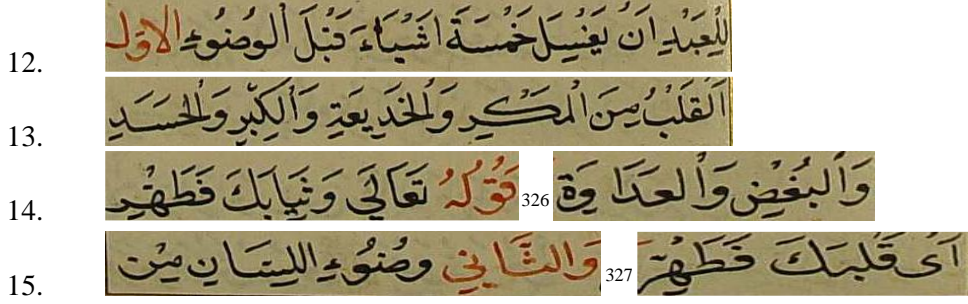 12. لِلْعَبْدِ اَنْ يَغْسِلَ خَمْسَةَ اَشْيَاءَ قَبْلَ اَلْوُضُوءِ الاَوّل
13. اَلْقَلْبُ مِنَ الْمَكْرِ وَالْخَدِيعَةِ وَالْكِبْرِ وَالْحَسَدِ
14. وَالْبُغْضِ وَالْعَدَاوَةِ 326 قَوْلُهُ تَعَالَى وَثِيَابَكَ فَطَهِّرْ
15. اَىْ قَلْبَكَ فَطَهِّرْ 327 وَالثَّانِي وُضُوءِ اللِّسَانِ مِنْ